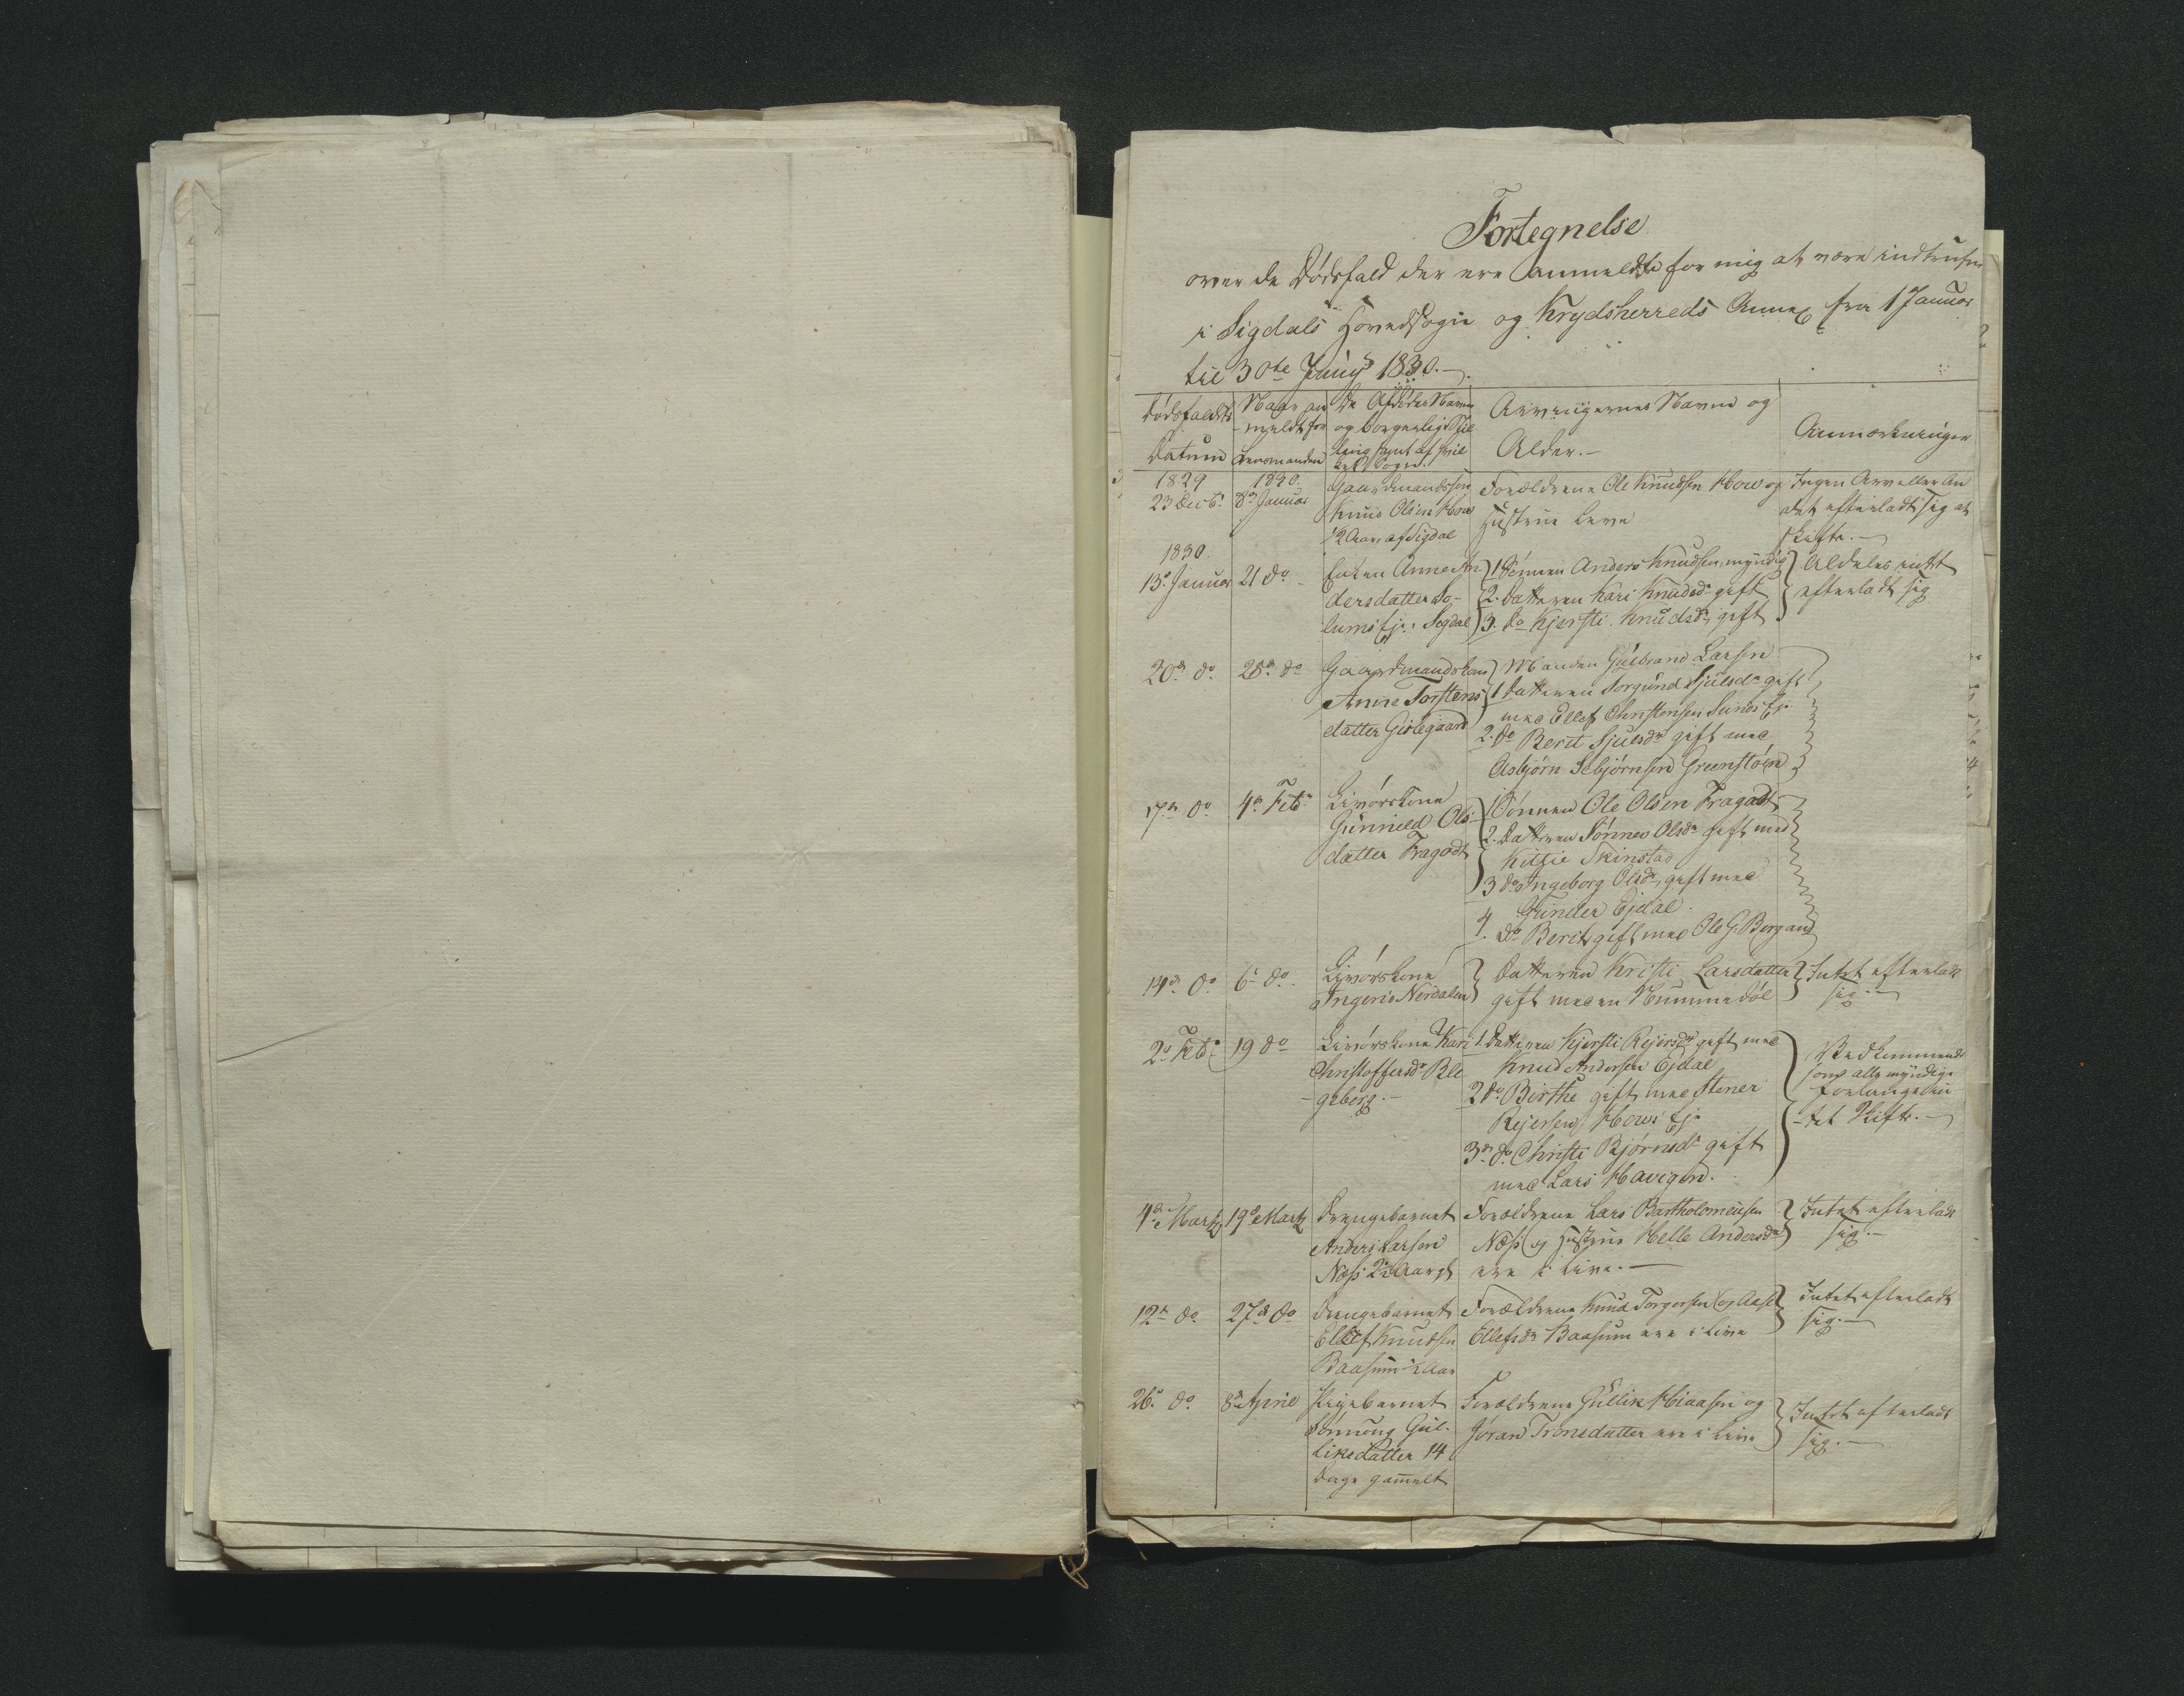 Fortegnelse
over de Dødsfald der ere anmeldte for mig at være indtrufne
i Sigdals Hovedsogn og Krydsherreds Annex fra 1 Januar
til 30te Junij 1830.
Dødsfaldets
Datum
Naar an-
meldt for
Lensmanden
De Afdødes Navne
og borgerlige Stil-
ling samt af hvil-
ket Sogn.
Arvingernes Navne og
Alder.
Anmærkninger
1829
23 Decbr.
1830.
8de Januar
Gaardmandssøn
Knud Olsen How
12 Aar af Sigdal
Forældrene Ole Knudsen How og
Hustrue leve
Ingen Arv eller An
det efterladt sig at
skifte.
1830.
13de Januar
21 do
Enken Anne An-
dersdatter So-
lumsEje: Sigdal
1 Sønnen Anders Knudsen, myndig
2. Datteren Kari Knudsdr gift
3. do Kjersti Knudsdr, gift
Aldeles intet
efterladt sig
20de do
28de do
Gaardmandskone
Anne Torstens
datter Gislegaard
Manden Gulbrand Larsen
1 Datteren Torgund Sjulsdr gift
med Ellef Christensen Eje
2. do Berit Sjulsdr gift med
Asbjørn Asbjørnsen Greenstøen
17de do
4de Febr
Livørskone
Gunnild Ols-
datter Fragodt
1 Sønnen Ole Olsen Fragodt
2. Datteren Sønnev Olsdr gift med
Kittil Skinstad
3 do Ingeborg Olsdr, gift med
Gunder Ejdal
4. do Berit gift med Ole G. Borgand
14de do
6te do
Livørskone
Ingerie Nordalen
Datteren Kristi Larsdatter
gift med en Nummedøl
Intet efterladt
sig.
2de Feb.
19 do
Livørskone Kari
Christoffersdr Ble
geberg.
1. Datteren Kjersti Rejersdr gift med
Knud Andersen Ejdal
2 do Birthe gift med Stener
Rejersen Hows Eje
3de do Christi Bjørnsdr gift
med Lars Havigen.
Vedkommende
som alle myndige
forlanger in-
tet Skifte.
4de Martz
19de Martz
Drengebarnet
Anders Larsen
Næss 2½ Aargl
Forældrene Lars Bartholomeusen
Næss og Hustrue Helle Andersdr
ere i Live.
Intet efterladt
sig.
12te do
27de do
Drengebarnet
Ellef Knudsen
Baasum ½ Aar
Forældrene Knud Torgersen og Aase
Ellefsdr Baasum ere i Live
Intet efterladt
sig.
26de do
8de April
Pigebarnet
Sønnoug Gul-
liksdatter 14
Dage gammelt
Forældrene Gullik Hiaasen og
Jøran Tronsdatter ere i Live
Intet efterladt
sig.